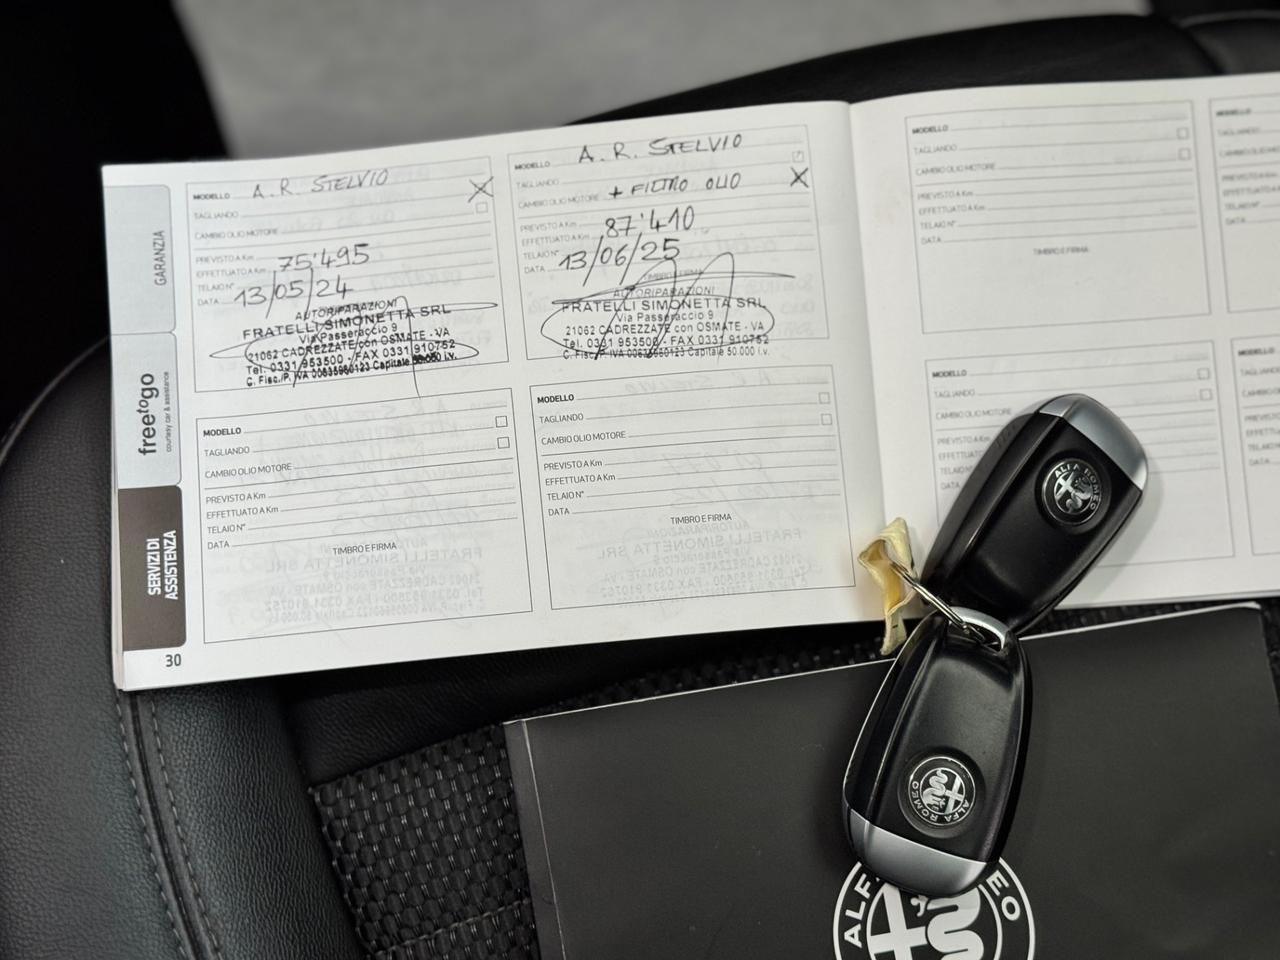 GARANZIA
freetogo
courtesy car & assistance
SERVIZI DI
ASSISTENZA
30
MODELLO A.R. STELVIO
TAGLIANDO X
CAMBIO OLIO MOTORE
PREVISTO A Km
EFFETTUATO A Km 75'495
TELAIO N°
DATA 13/05/24
AUTORIPARAZIONI
FRATELLI SIMONETTA SRL
Via Passeraccio 9
21062 CADREZZATE con OSMATE - VA
Tel. 0331 953500 - FAX 0331 910752
C. Fisc./P. IVA 00635960123 Capitale 50.000 i.v.
MODELLO A.R. STELVIO
TAGLIANDO
CAMBIO OLIO MOTORE + FILTRO OLIO X
PREVISTO A Km
EFFETTUATO A Km 87'410
TELAIO N°
DATA 13/06/25
TIMBRO E FIRMA
AUTORIPARAZIONI
FRATELLI SIMONETTA SRL
Via Passeraccio 9
21062 CADREZZATE con OSMATE - VA
Tel. 0331 953500 - FAX 0331 910752
C. Fisc./P. IVA 00635960123 Capitale 50.000 i.v.
MODELLO
TAGLIANDO
CAMBIO OLIO MOTORE
PREVISTO A Km
EFFETTUATO A Km
TELAIO N°
DATA
TIMBRO E FIRMA
MODELLO
TAGLIANDO
CAMBIO OLIO MOTORE
PREVISTO A Km
EFFETTUATO A Km
TELAIO N°
DATA
TIMBRO E FIRMA
MODELLO
TAGLIANDO
CAMBIO OLIO MOTORE
PREVISTO A Km
EFFETTUATO A Km
TELAIO N°
DATA
TIMBRO E FIRMA
MODELLO
TAGLIANDO
CAMBIO OLIO MOTORE
PREVISTO A Km
EFFETTUATO A
TELAIO N°
DATA
ALFA ROMEO
ALFA ROMEO